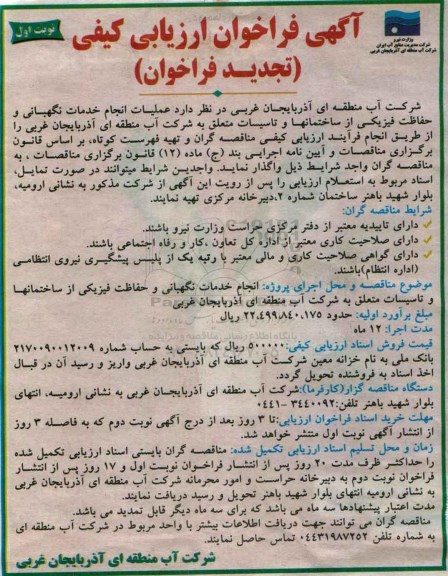 وزارت نیرو
شرکت مدیریت منابع آب ایران
شرکت آب منطقه ای آذربایجان غربی
آگهی فراخوان ارزیابی کیفی
نوبت اول
(تجدید فراخوان)
شرکت آب منطقه ای آذربایجان غربی در نظر دارد عملیات انجام خدمات نگهبانی و
حفاظت فیزیکی از ساختمانها و تاسیسات متعلق به شرکت آب منطقه ای آذربایجان غربی را
از طریق انجام فرآیند ارزیابی کیفی مناقصه گران و تهیه فهرست کوتاه، بر اساس قانون
برگزاری مناقصات و آیین نامه اجرایی بند (ج) ماده (۱۲) قانون برگزاری مناقصات ، به
مناقصه گران واجد شرایط ذیل واگذار نماید. واجدین شرایط میتوانند در صورت تمایل،
اسناد مربوط به استعلام ارزیابی را پس از رویت این آگهی از شرکت مذکور به نشانی ارومیه،
بلوار شهید باهنر ساختمان شماره ۲،دبیرخانه مرکزی تهیه نمایند.
شرایط مناقصه گران:
✓ دارای تاییدیه معتبر از دفتر مرکزی حراست وزارت نیرو باشند.
✓ دارای صلاحیت کاری معتبر از اداره کل تعاون ،کار و رفاه اجتماعی باشند.
✓ دارای گواهی صلاحیت کاری و مالی معتبر با رتبه یک از پلیس پیشگیری نیروی انتظامی
(اداره انتظام)باشند.
موضوع مناقصه و محل اجرای پروژه: انجام خدمات نگهبانی و حفاظت فیزیکی از ساختمانها
و تاسیسات متعلق به شرکت آب منطقه ای آذربایجان غربی
مبلغ برآورد اولیه: حدود ۲۲،۴۹۹،۸۴۰،۱۷۵ ریال
مدت اجرا: ۱۲ ماه
قیمت فروش اسناد ارزیابی کیفی: ۵۰۰۰۰۰ ریال که بایستی به حساب شماره ۲۱۷۰۰۹۰۰۱۲۰۰۹
بانک ملی به نام خزانه معین شرکت آب منطقه ای آذربایجان غربی واریز و رسید آن در قبال
اخذ اسناد به فروشنده تحویل گردد.
دستگاه مناقصه گزار(کارفرما):شرکت آب منطقه ای آذربایجان غربی به نشانی ارومیه، انتهای
بلوار شهید باهنر تلفن:۳۴۴۰۰۹۲-۰۴۴۱
مهلت خرید اسناد فراخوان ارزیابی:تا ۳ روز بعد از درج آگهی نوبت دوم که به فاصله ۳ روز
از انتشار آگهی نوبت اول منتشر خواهد شد.
زمان و محل تسلیم اسناد ارزیابی تکمیل شده: مناقصه گران بایستی اسناد ارزیابی تکمیل شده
را حداکثر ظرف مدت ۲۰ روز پس از انتشار فراخوان نوبت اول و ۱۷ روز پس از انتشار
فراخوان نوبت دوم به دبیرخانه حراست و امور محرمانه شرکت آب منطقه ای آذربایجان غربی
به نشانی ارومیه انتهای بلوار شهید باهنر تحویل و رسید دریافت نمایند.
مدت اعتبار پیشنهادها سه ماه می باشد که برای سه ماه دیگر قابل تمدید می باشد.
مناقصه گران می توانند جهت دریافت اطلاعات بیشتر با واحد مربوط در شرکت آب منطقه ای
به شماره تلفن ۰۴۴۳۱۹۸۷۲۵۲ تماس حاصل نمایند.
شرکت آب منطقه ای آذربایجان غربی